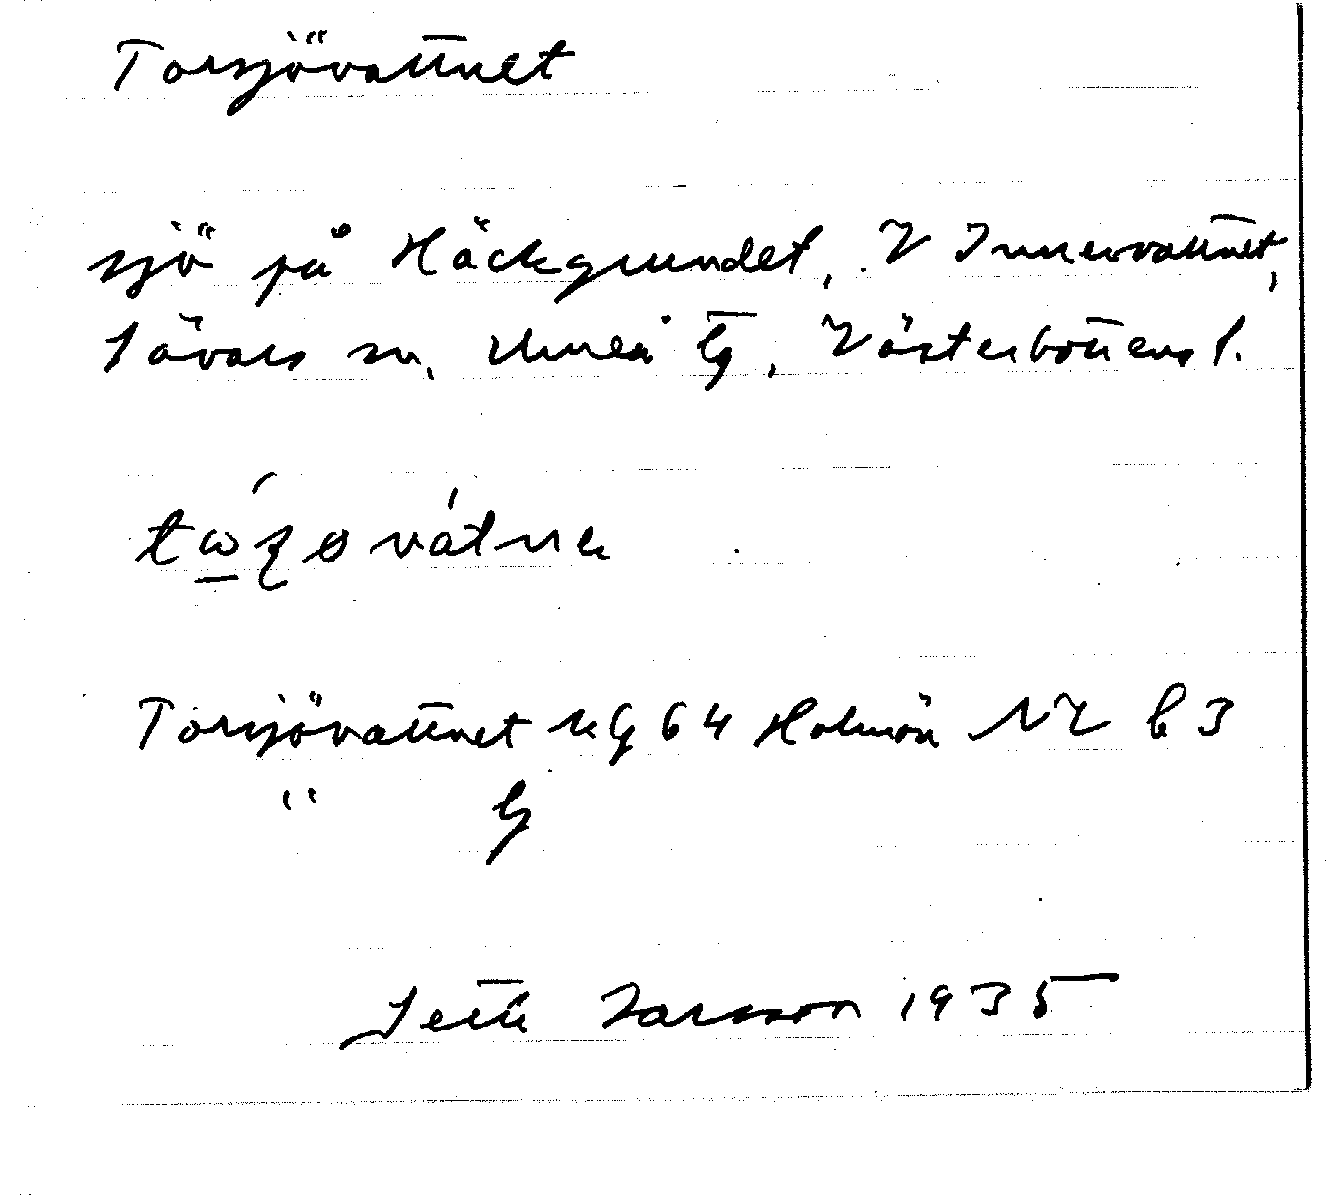 Torsjövattnet
sjö på Häckgrundet, V Innervattnet,
Sävars sn, Umeå tg, Västerbottens l.
Torsjövattnet Ug 64 Holmön NV b 3
" tg
Larsson 1935